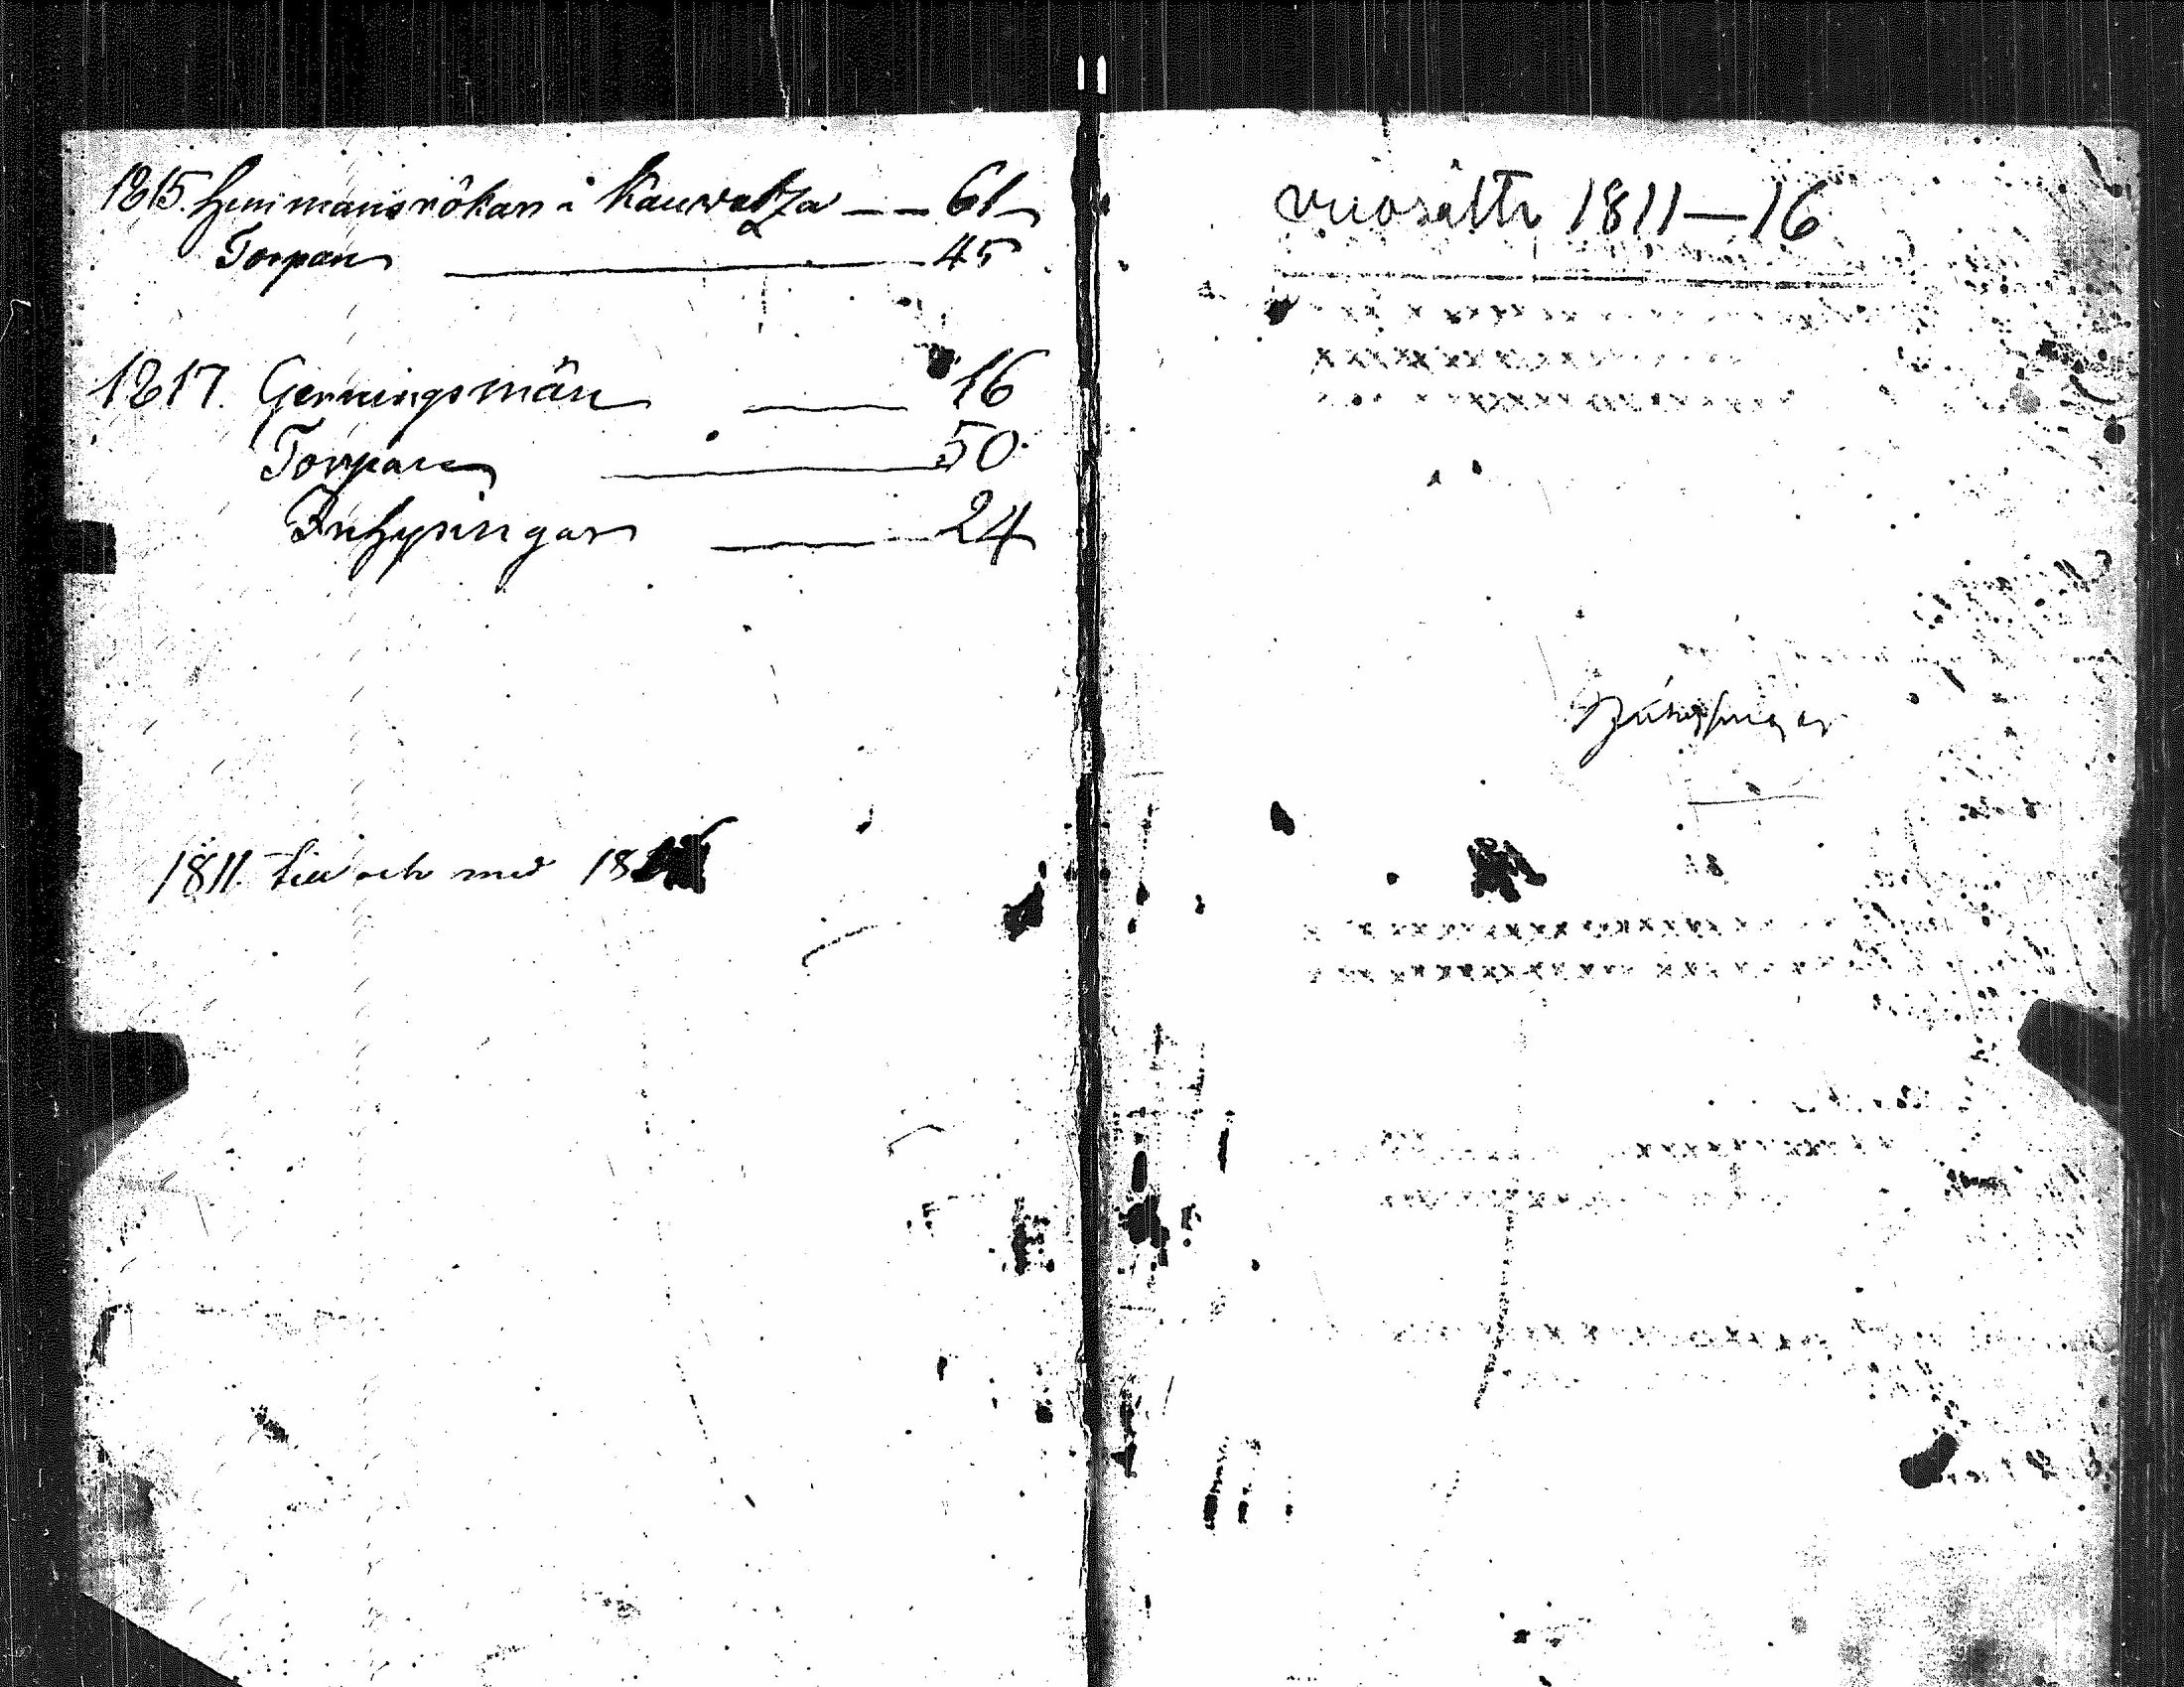 1815. Hemmansrökar i Kauvatza — — 61
Torpare — 45
1817. Gerningsmän — 16
Torpare — 50
Inhysingar — 24
1811 till och med 18
vuosilta 1811—16